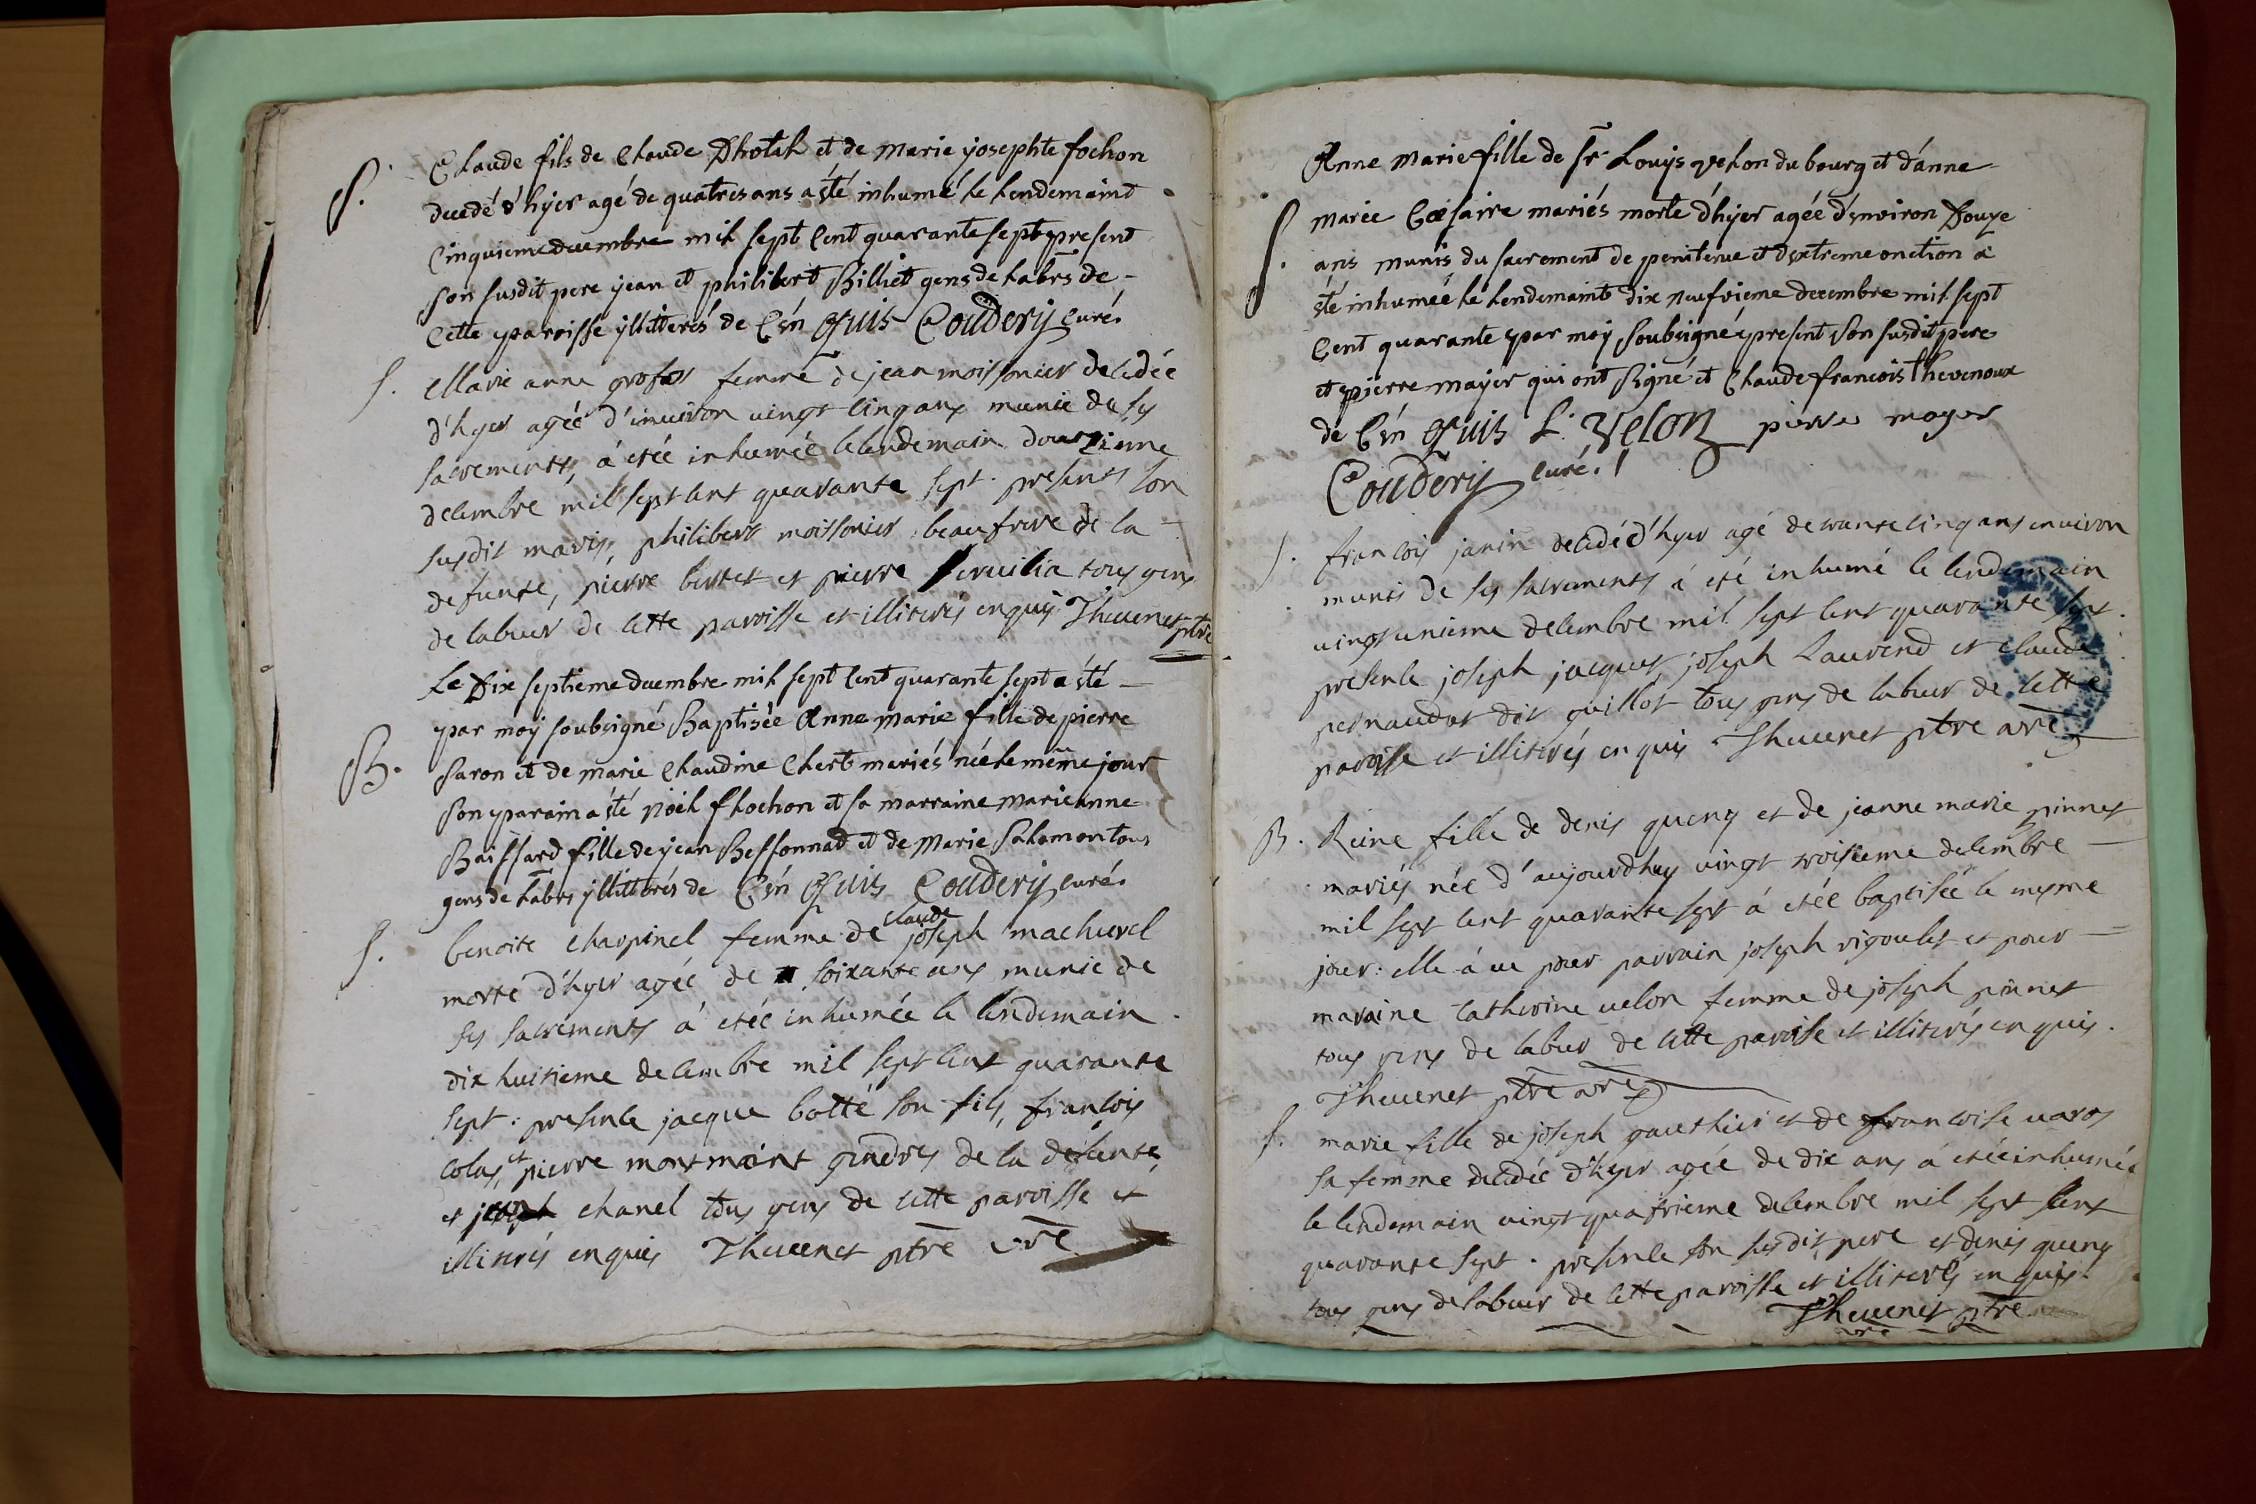 S.
Claude fils de Claude Dhotel et de Marie josephte fochon
decedé d'hyer agé de quatres ans a ésté inhumé le lendemaint
Cinquieme decembre mil sept Cent quarante sept present
son susdit pere jean et philibert Billiet gens de labrs de
Cette paroisse yllitterés de Csn Quis Coudery curé.
S. Marie anne femme de jean moissonier decedée
d'hyer agée d'inuiron uingt cinq ans munie de ses
sacrements, à etée inhumée le lendemain douzieme
decembre mil sept cent quarante sept. presents son
susdit maris, philibert moissonier beaufrere de la
defunte, pierre bertet et pierre tous gens
de labeur de cette paroisse et illiterés enquis Theuenet ptre
Le Dix septieme decembre mil sept Cent quarante sept a ésté
par moy soubsigné Baptisée Anne marie fille de pierre
B. Saron et de marie Claudine Chert mariés née le même jour
son parain a ésté Nöel flochon et sa marraine marieanne
Baissard fille de jean Bessonnad et de Marie Salomon tous
gens de labrs yllitterés de Csn Quis Coudery curé.
S. benoite charpinel femme de claude joseph macherel
morte d'hyer agée de soixante ans munie de
ses sacrements à etée inhumée le lendemain
dix huitieme decembre mil sept cent quarante
sept: presence jacque botté son fils, francois
colas, et pierre montmaint gendres de la defunte,
et chanel tous gens de cette paroisse et
illiterés enquis Theuenet ptre vre
Anne Marie fille de Sr Louys velon du bourg et d'anne
S. Marie Coesaire mariés morte d'hyer agée d'environ Douze
ans munis du sacrement de penitence et d'extreme onction a
ésté inhumée le lendemaint dix neufvieme decembre mil sept
Cent quarante par moy soubsigné present son susdit pere
et pierre mayer qui ont signé et Claude francois thevenoux
de Csn Quis L. velon pierre mayer
Coudery curé.
S. francois janin decedé d'hyer agé de trante cinq ans enuiron
munis de ses sacrements à eté inhumé le lendemain
uingt unieme decembre mil sept cent quarante sept.
presence joseph jacquet, joseph Laurend et claude
pernaudet dit guillot tous gens de labeur de cette
paroisse et illiterés enquis Theuenet ptre vre
B. Reine fille de denis queny et de jeanne marie pinnet
mariés née d'aujourdhuy uingt troisieme decembre
mil sept cent quarante sept à etée baptisée le mesme
jour: elle à eu pour parrain joseph rigoulet et pour
maraine catherine uelon femme de joseph pinnet
tous gens de labeur de cette paroisse et illiterés enquis.
Theuenet ptre vre
S. marie fille de joseph gauthier et de francoise uaros
sa femme decedée d'hyer agée de dix ans à etée inhumée
le lendemain uingt quatrieme decembre mil sept cent
quarante sept. presence son susdit pere et denis queny
tous gens de labeur de cette paroisse et illiterés enquis
Theuenet ptre
vre